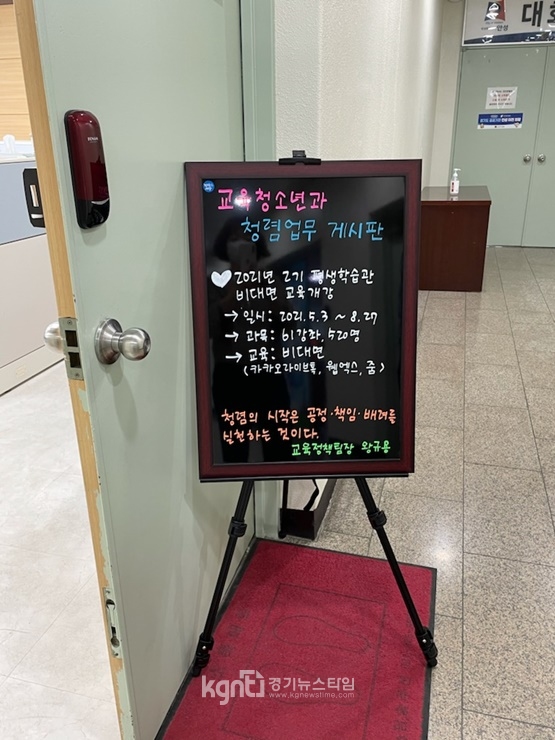 대회
교육청소년과
청렴업무 게시판
2021년 2기 평생학습관
비대면 교육개강
→ 일시: 2021. 5. 3 ~ 8. 27
→ 과목: 61강좌, 520명
→ 교육: 비대면
(카카오라이브톡, 웹엑스, 줌)
청렴의 시작은 공정·책임·배려를
실천하는 것이다.
교육정책팀장 왕규용
kgnti 경기뉴스타임
www.kgnewstime.com